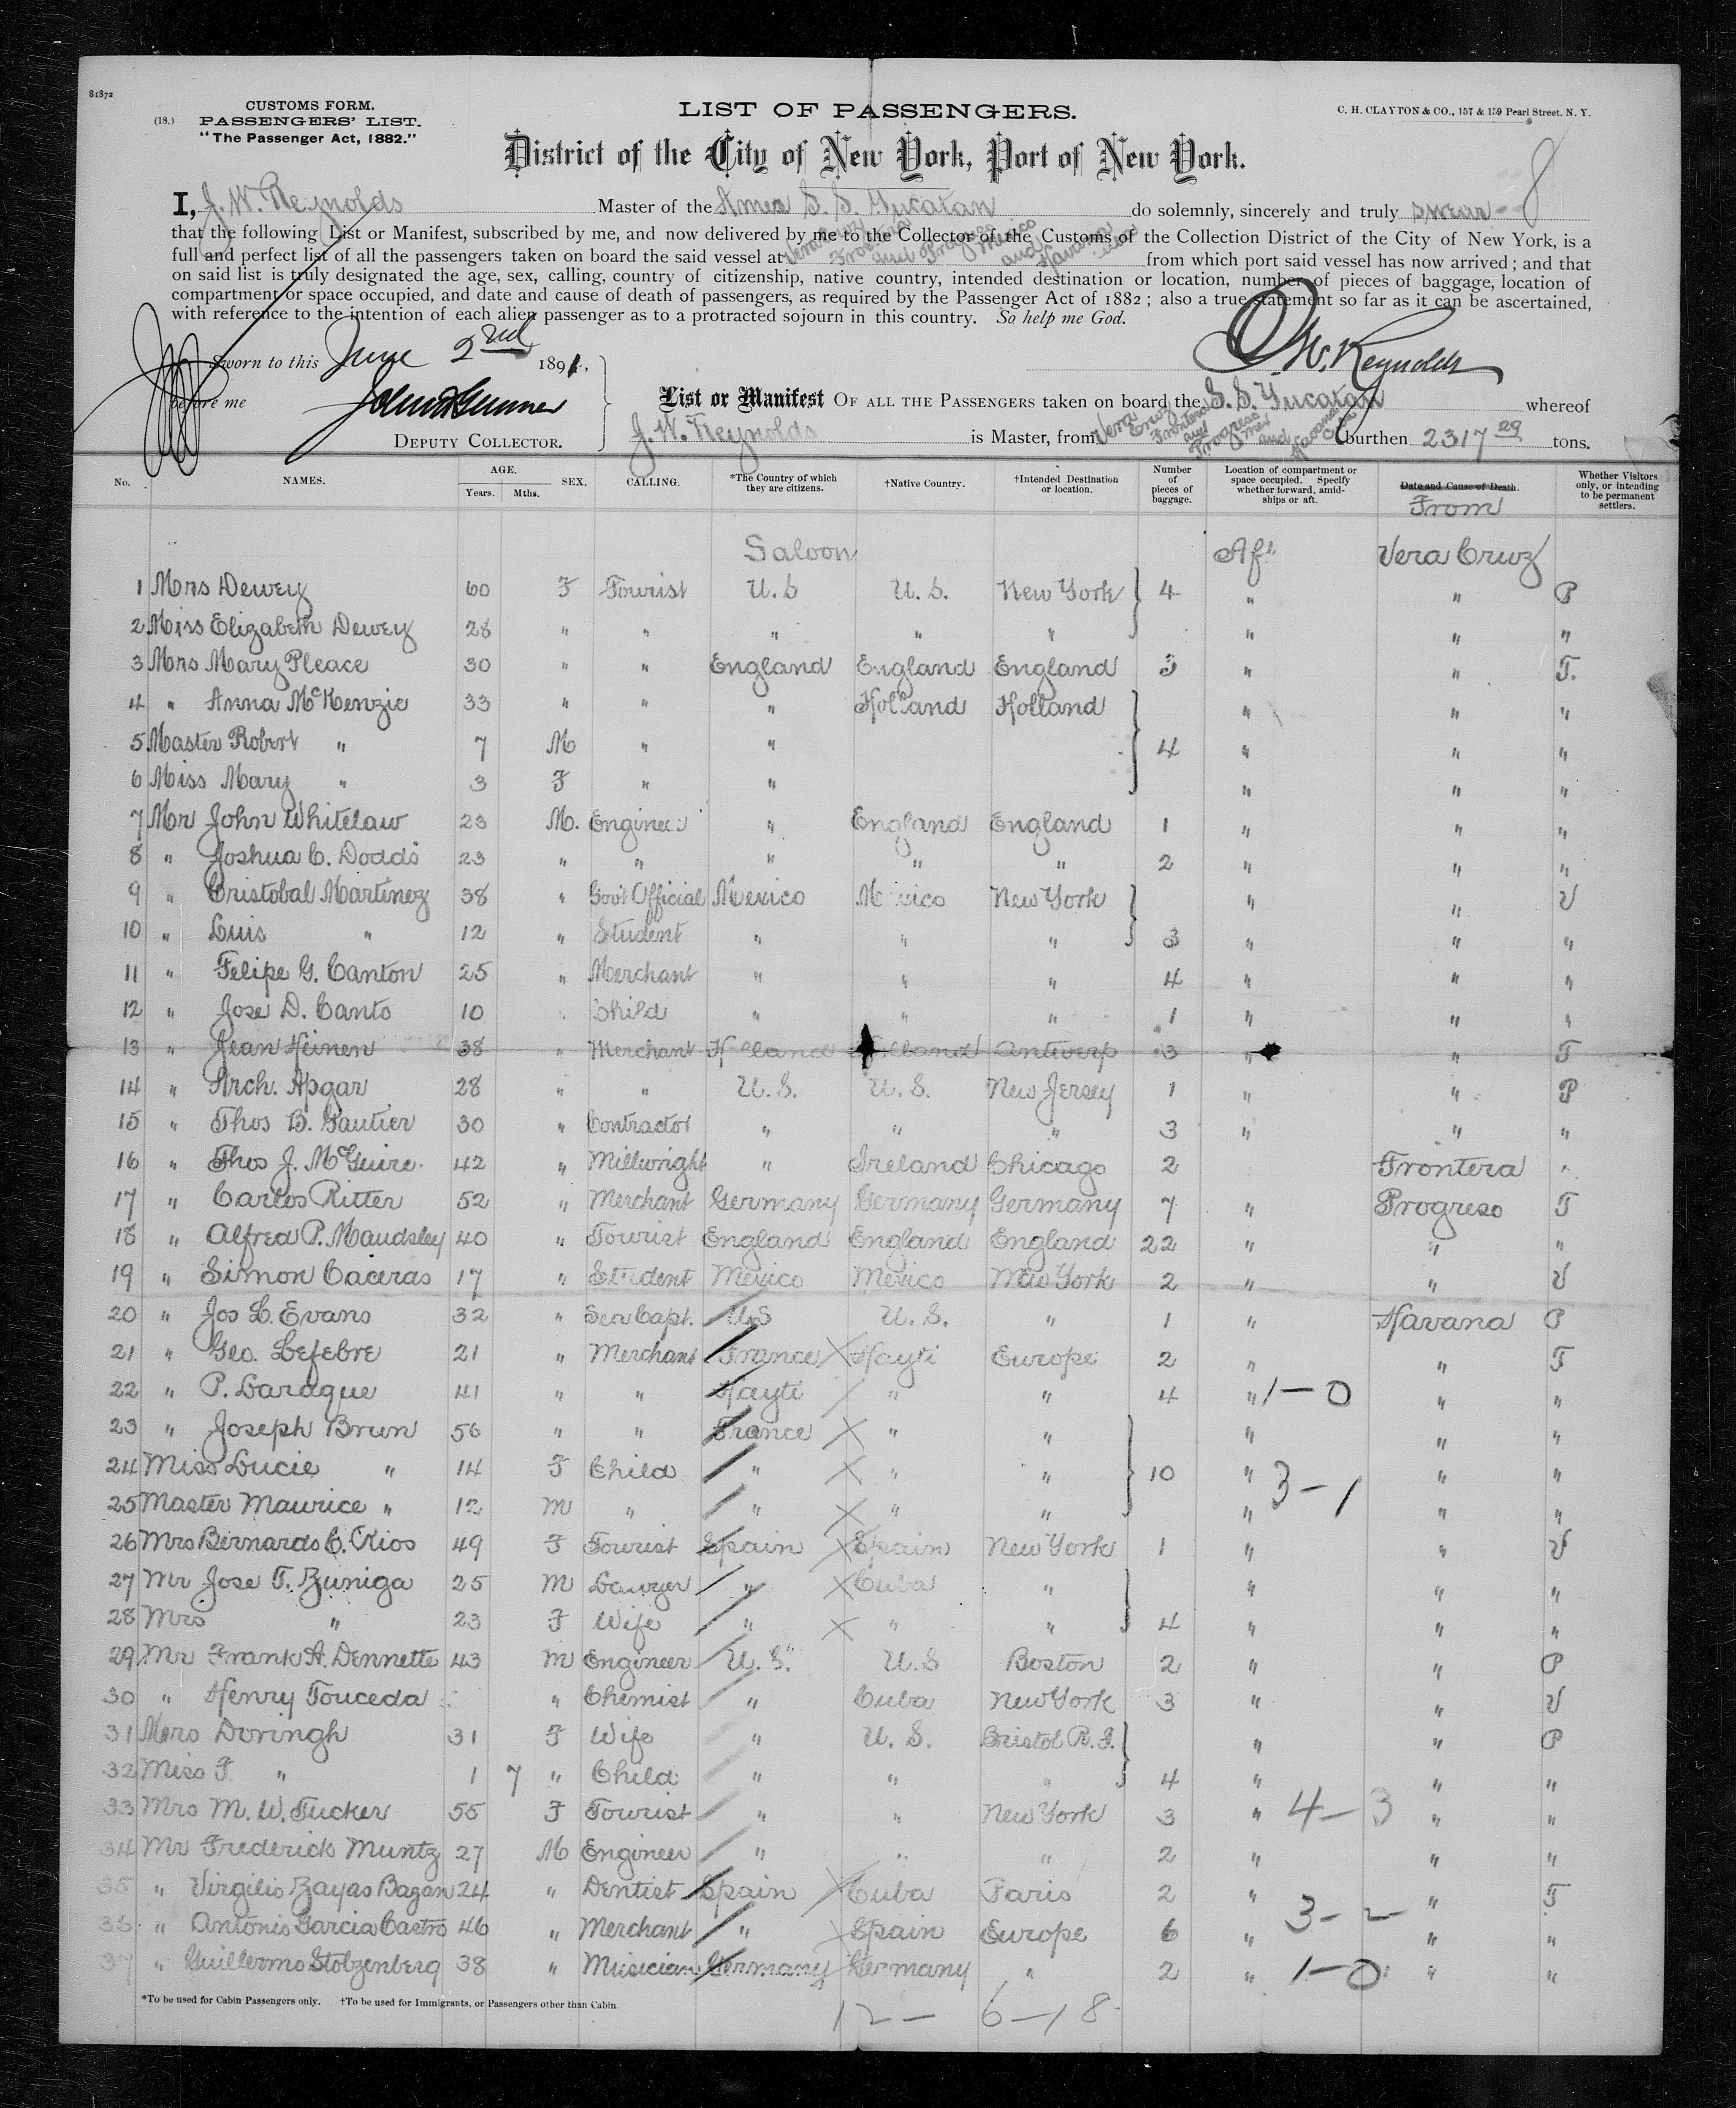 81872
CUSTOMS FORM.
(18.) PASSENGERS' LIST.
"The Passenger Act, 1882."
LIST OF PASSENGERS.
C. H. CLAYTON & CO., 157 & 159 Pearl Street, N. Y.
District of the City of New York, Port of New York.
I, J. W. Reynolds Master of the Amer S. S. Yucatan do solemnly, sincerely and truly swear
that the following List or Manifest, subscribed by me, and now delivered by me to the Collector of the Customs of the Collection District of the City of New York, is a
full and perfect list of all the passengers taken on board the said vessel at Vera Cruz Frontera and Progreso Mexico and Havana Cuba from which port said vessel has now arrived; and that
on said list is truly designated the age, sex, calling, country of citizenship, native country, intended destination or location, number of pieces of baggage, location of
compartment or space occupied, and date and cause of death of passengers, as required by the Passenger Act of 1882; also a true statement so far as it can be ascertained,
with reference to the intention of each alien passenger as to a protracted sojourn in this country. So help me God.
Sworn to this June 2nd 1891, J. W. Reynolds
before me
DEPUTY COLLECTOR.
List or Manifest OF ALL THE PASSENGERS taken on board the S. S. Yucatan whereof
J. W. Reynolds is Master, from Vera Cruz Frontera and Progreso Mex and Havana Cuba burthen 2317 29 tons.
No. NAMES. AGE. Years. Mths. SEX. CALLING. *The Country of which they are citizens. †Native Country. †Intended Destination or location. Number of pieces of baggage. Location of compartment or space occupied. Specify whether forward, amidships or aft. Date and Cause of Death. From Whether Visitors only, or intending to be permanent settlers.
Saloon Aft Vera Cruz
1 Mrs Dewey 60 F Tourist U.S U.S. New York 4 " " P
2 Miss Elizabeth Dewey 28 " " " " " " " "
3 Mrs Mary Pleace 30 " " England England England 3 " " T.
4 " Anna McKenzie 33 " " " Holland Holland " " "
5 Master Robert " 7 M " " 4 " " "
6 Miss Mary " 3 F " " " " "
7 Mr John Whitelaw 23 M. Engineer " England England 1 " " "
8 " Joshua C. Dodds 23 " " " " " 2 " " "
9 " Cristobal Martinez 38 " Govt Official Mexico Mexico New York " " V
10 " Luis " 12 " Student " " " 3 " " "
11 " Felipe G. Canton 25 " Merchant " " " 4 " " "
12 " Jose D. Canto 10 " Child " " " 1 " " "
13 " Jean Heinen 38 " Merchant Holland Holland Antwerp 3 " " T
14 " Arch. Apgar 28 " " U.S. U.S. New Jersey 1 " " P
15 " Thos B. Gautier 30 " Contractor " " " 3 " " "
16 " Thos J. McGuire 42 " Millwright " Ireland Chicago 2 Frontera "
17 " Carlos Ritter 52 " Merchant Germany Germany Germany 7 " Progreso T
18 " Alfred P. Maudsley 40 " Tourist England England England 22 " " "
19 " Simon Caceras 17 " Student Mexico Mexico New York 2 " " V
20 " Jos L. Evans 32 " Sea Capt. U.S U.S. " 1 " Havana P
21 " Geo. Lefebre 21 " Merchant France Hayti Europe 2 " " T
22 " P. Laraque 41 " " Hayti " " 4 " 1-0 " "
23 " Joseph Brun 56 " " France " " " " "
24 Miss Lucie " 14 F Child " " " 10 " 3-1 " "
25 Master Maurice " 12 M " " " " " " "
26 Mrs Bernardo C. Rios 49 F Tourist Spain Spain New York 1 " " V
27 Mr Jose T. Zuniga 25 M Lawyer " Cuba " " " "
28 Mrs " 23 F Wife " " " 4 " " "
29 Mr Frank H. Dennette 43 M Engineer U.S. U.S Boston 2 " " P
30 " Henry Touceda " Chemist " Cuba New York 3 " " V
31 Mrs Doringh 31 F Wife " U.S. Bristol R.I. " " P
32 Miss F. " 1 7 " Child " " " 4 " " "
33 Mrs M. W. Tucker 55 F Tourist " " New York 3 " 4-3 " "
34 Mr Frederick Muntz 27 M Engineer " " " 2 " " "
35 " Virgilio Zayas Bazan 24 " Dentist Spain Cuba Paris 2 " " T
36 " Antonio Garcia Castro 46 " Merchant " Spain Europe 6 " 3-2 " "
37 " Guillermo Stolzenberg 38 " Musician Germany Germany " 2 " 1-0 " "
*To be used for Cabin Passengers only. †To be used for Immigrants, or Passengers other than Cabin.
12 - 6 - 18